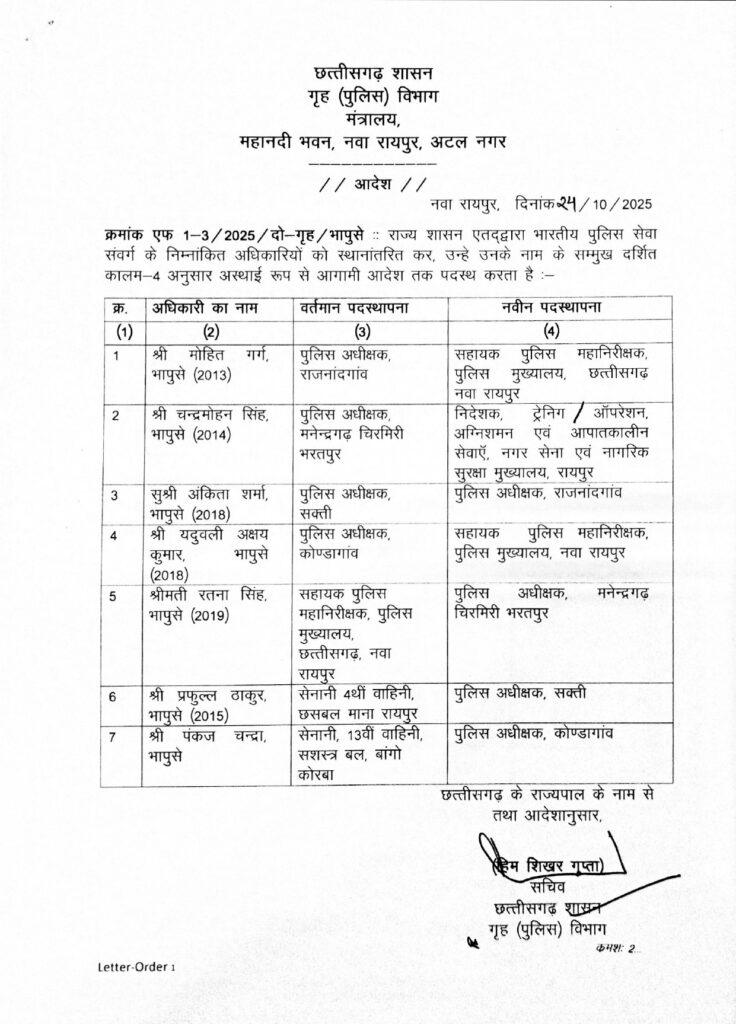 छत्तीसगढ़ शासन
गृह (पुलिस) विभाग
मंत्रालय,
महानदी भवन, नवा रायपुर, अटल नगर
-------------
// आदेश //
नवा रायपुर, दिनांक 24/10/2025
क्रमांक एफ 1-3/2025/दो-गृह/भापुसे :: राज्य शासन एतद्द्वारा भारतीय पुलिस सेवा
संवर्ग के निम्नांकित अधिकारियों को स्थानांतरित कर, उन्हे उनके नाम के सम्मुख दर्शित
कालम-4 अनुसार अस्थाई रूप से आगामी आदेश तक पदस्थ करता है :-
क्र. अधिकारी का नाम वर्तमान पदस्थापना नवीन पदस्थापना
(1) (2) (3) (4)
1 श्री मोहित गर्ग, पुलिस अधीक्षक, सहायक पुलिस महानिरीक्षक,
भापुसे (2013) राजनांदगांव पुलिस मुख्यालय, छत्तीसगढ़
नवा रायपुर
2 श्री चन्द्रमोहन सिंह, पुलिस अधीक्षक, निदेशक, ट्रेनिग / ऑपरेशन,
भापुसे (2014) मनेन्द्रगढ़ चिरमिरी अग्निशमन एवं आपातकालीन
भरतपुर सेवाएॅ, नगर सेना एवं नागरिक
सुरक्षा मुख्यालय, रायपुर
3 सुश्री अंकिता शर्मा, पुलिस अधीक्षक, पुलिस अधीक्षक, राजनांदगांव
भापुसे (2018) सक्ती
4 श्री यदुवली अक्षय पुलिस अधीक्षक, सहायक पुलिस महानिरीक्षक,
कुमार, भापुसे कोण्डागांव पुलिस मुख्यालय, नवा रायपुर
(2018)
5 श्रीमती रतना सिंह, सहायक पुलिस पुलिस अधीक्षक, मनेन्द्रगढ़
भापुसे (2019) महानिरीक्षक, पुलिस चिरमिरी भरतपुर
मुख्यालय,
छत्तीसगढ़, नवा
रायपुर
6 श्री प्रफुल्ल ठाकुर, सेनानी 4थीं वाहिनी, पुलिस अधीक्षक, सक्ती
भापुसे (2015) छसबल माना रायपुर
7 श्री पंकज चन्द्रा, सेनानी, 13वीं वाहिनी, पुलिस अधीक्षक, कोण्डागांव
भापुसे सशस्त्र बल, बांगो
कोरबा
छत्तीसगढ़ के राज्यपाल के नाम से
तथा आदेशानुसार,
(हिम शिखर गुप्ता)
सचिव
छत्तीसगढ़ शासन
गृह (पुलिस) विभाग
क्रमशः 2...
Letter-Order 1